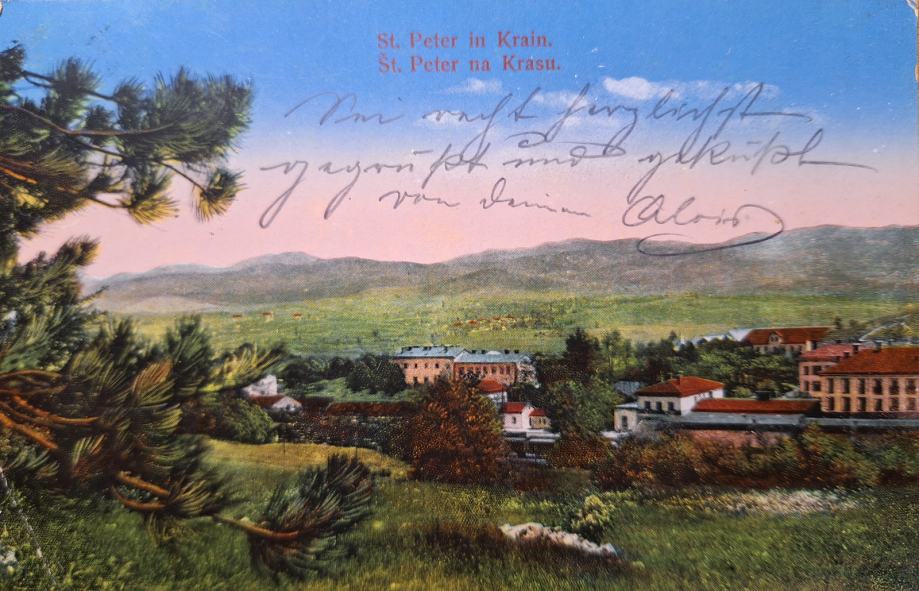 St. Peter in Krain.
Št. Peter na Krasu.
Sei recht herzlichst
gegrüßt und geküßt
von deinem Alois